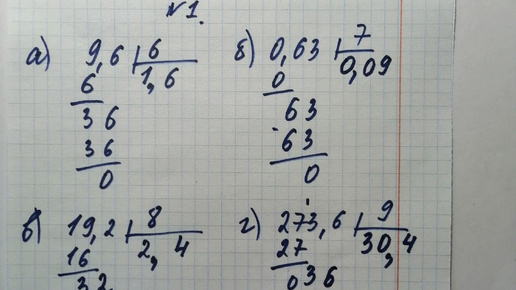 №1.
а) 9,6 | 6
6 1,6
36
36
0
б) 0,63 | 7
0 0,09
63
63
0
в) 19,2 | 8
16 2,4
32
г) 273,6 | 9
27 30,4
036